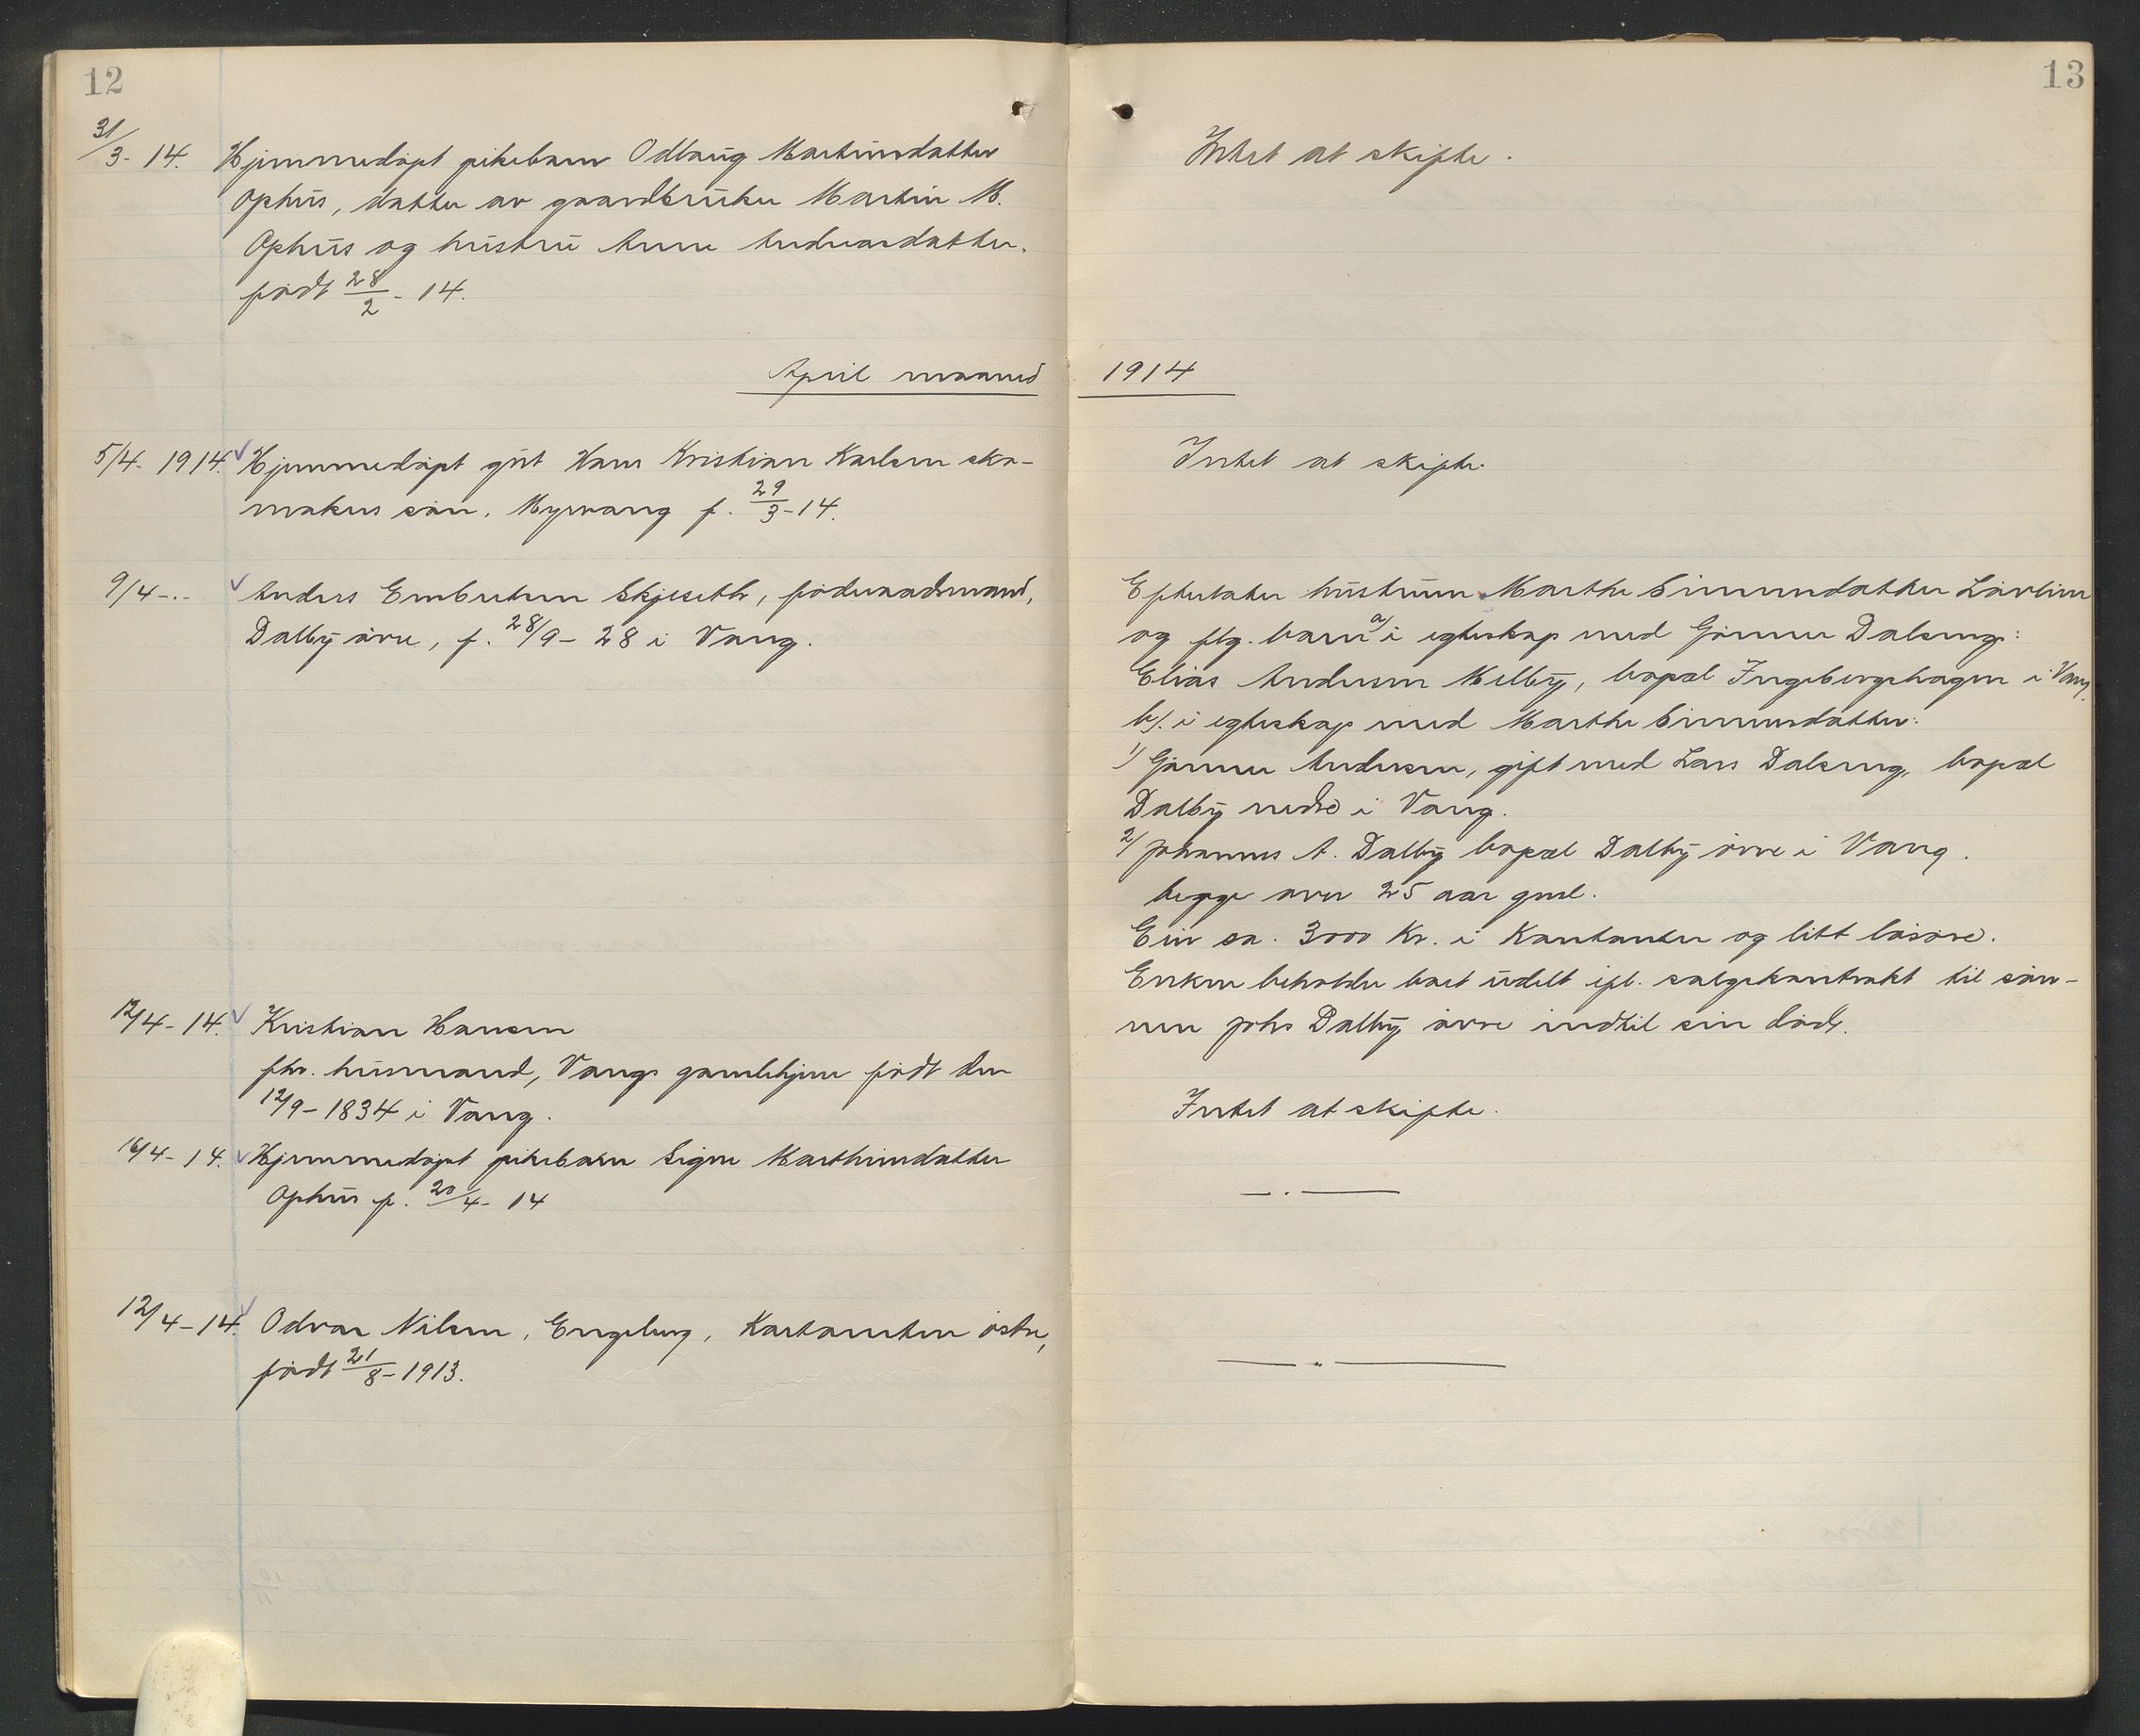 12
31/3-14. Hjemmedøpt pikebarn Odlaug Martinsdatter
Ophus, datter av gaardbruker Martin M.
Ophus og hustru Anne Andreasdatter.
født 28/2-14.
April maaned
5/4-1914. Hjemmedøpt gut Hans Kristian Karlsen sko-
makers søn. Myrvang f. 29/3-14.
9/4-.. Anders Embretsen Skjeseth, føderaadsmand,
Dalby øvre, f. 28/9-28 i Vang.
12/4-14. Kristian Hansen
fhv. husmand, Vangs gamlehjem født den
12/9-1834 i Vang.
16/4-14. Hjemmedøpt pikebarn Signe Marthinsdatter
Ophus f. 20/4-14
12/4-14. Odvar Nilsen, Engelberg, Kartomten østre,
født 21/8-1913.
13
Intet at skifte.
1914
Intet at skifte.
Efterlater hustruen Marthe Simensdatter Løvlien
og flg. barn a/ i egteskap med Gønner Dalseng:
Elias Andersen Melby, bopæl Ingebergshagen i Vang.
b/. i egteskap med Marthe Simensdatter:
1/ Gønner Andersen, gift med Lars Dalseng, bopæl
Dalby nedre i Vang.
2/ Johannes A. Dalby bopæl Dalby øvre i Vang.
begge over 25 aar gml.
Eier ca. 3000 Kr. i Kontanter og litt løsøre.
Enken beholder boet udelt ifl. salgskontrakt til søn-
nen Johs Dalby øvre indtil sin død.
Intet at skifte.
—.——
——"——